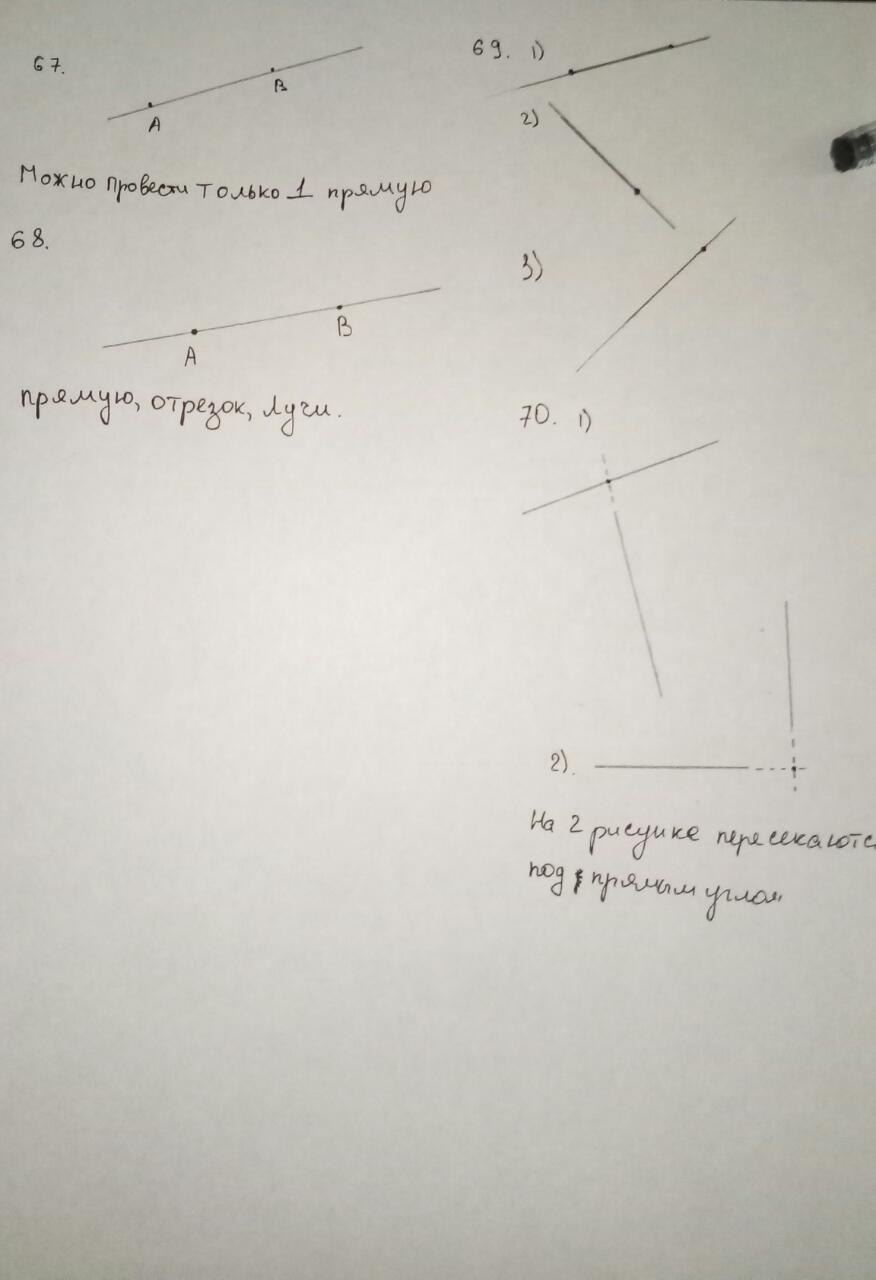 67.
A
B
Можно провести только 1 прямую
68.
A
B
прямую, отрезок, лучи.
69. 1)
2)
3)
70. 1)
2).
На 2 рисунке пересекаютс
под прямым углом